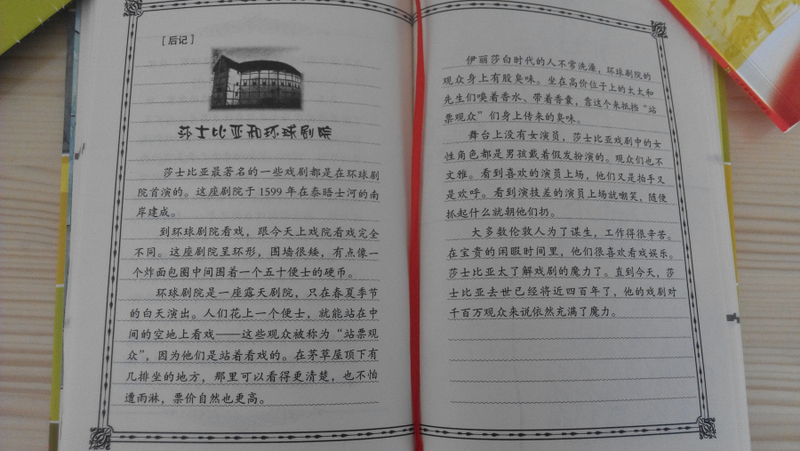 ［后记］
莎士比亚和环球剧院
莎士比亚最著名的一些戏剧都是在环球剧
院首演的。这座剧院于 1599 年在泰晤士河的南
岸建成。
到环球剧院看戏，跟今天上戏院看戏完全
不同。这座剧院呈环形，围墙很矮，有点像一
个炸面包圈中间围着一个五十便士的硬币。
环球剧院是一座露天剧院，只在春夏季节
的白天演出。人们花上一个便士，就能站在中
间的空地上看戏——这些观众被称为“站票观
众”，因为他们是站着看戏的。在茅草屋顶下有
几排坐的地方，那里可以看得更清楚，也不怕
遭雨淋，票价自然也更高。
伊丽莎白时代的人不常洗澡，环球剧院的
观众身上有股臭味。坐在高价位子上的太太和
先生们嗅着香水、带着香囊，靠这个来抵挡“站
票观众”们身上传来的臭味。
舞台上没有女演员，莎士比亚戏剧中的女
性角色都是男孩戴着假发扮演的。观众们也不
文雅。看到喜欢的演员上场，他们又是拍手又
是欢呼。看到演技差的演员上场就嘲笑，随便
抓起什么就朝他们扔。
大多数伦敦人为了谋生，工作得很辛苦。
在宝贵的闲暇时间里，他们很喜欢看戏娱乐。
莎士比亚太了解戏剧的魔力了。直到今天，莎
士比亚去世已经将近四百年了，他的戏剧对
千百万观众来说依然充满了魔力。